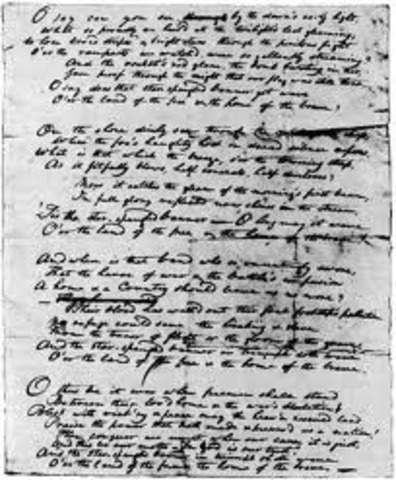 O say can you see by the dawn's early light,
What so proudly we hail'd at the twilight's last gleaming,
Whose broad stripes & bright stars through the perilous fight
O'er the ramparts we watch'd, were so gallantly streaming?
And the rocket's red glare, the bomb bursting in air,
Gave proof through the night that our flag was still there,
O say does that star-spangled banner yet wave
O'er the land of the free & the home of the brave?
On the shore dimly seen through the of the deep,
Where the foe's haughty host in dread silence reposes,
What is that which the breeze, o'er the towering steep,
As it fitfully blows, half conceals, half discloses?
Now it catches the gleam of the morning's first beam,
In full glory reflected now shines in the stream,
'Tis the star-spangled banner — O long may it wave
O'er the land of the free & the home of the
And where is that band who so vauntingly swore,
That the havoc of war & the battle's confusion
A home & a Country should leave us no more?
Their blood has wash'd out their foul footsteps pollution
No refuge could save the hireling & slave
From the terror of flight or the gloom of the grave,
And the star-spangled banner in triumph doth wave
O'er the land of the free & the home of the brave.
O thus be it ever when freemen shall stand
Between their lov'd home & the war's desolation!
Blest with vict'ry & peace may the heav'n rescued land
Praise the power that hath made & preserv'd us a nation!
Then conquer we must, when our cause it is just,
And this be our motto — "In God is our trust,"
And the star-spangled banner in triumph shall wave
O'er the land of the free & the home of the brave. —